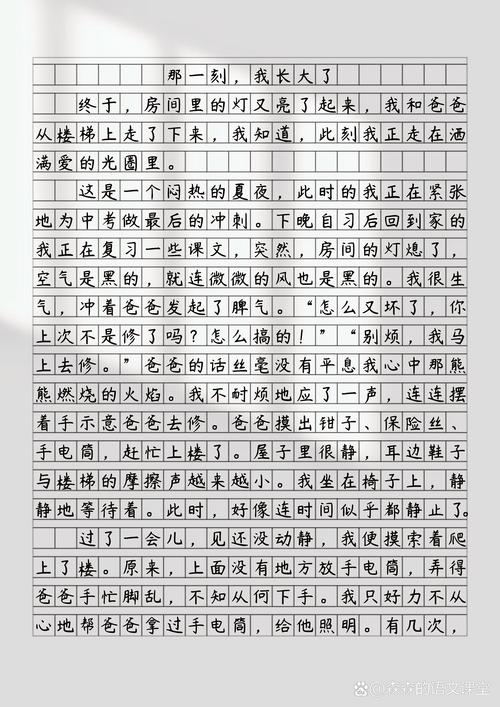 那一刻，我长大了
终于，房间里的灯又亮了起来，我和爸爸
从楼梯上走了下来，我知道，此刻我正走在洒
满爱的光圈里。
这是一个闷热的夏夜，此时的我正在紧张
地为中考做最后的冲刺。下晚自习后回到家的
我正在复习一些课文，突然，房间的灯熄了，
空气是黑的，就连微微的风也是黑的。我很生
气，冲着爸爸发起了脾气。“怎么又坏了，你
上次不是修了吗？怎么搞的！”“别烦，我马
上去修。”爸爸的话丝毫没有平息我心中那熊
熊燃烧的火焰。我不耐烦地应了一声，连连摆
着手示意爸爸去修。爸爸摸出钳子、保险丝、
手电筒，赶忙上楼了。屋子里很静，耳边鞋子
与楼梯的摩擦声越来越小。我坐在椅子上，静
静地等待着。此时，好像连时间似乎都静止了。
过了一会儿，见还没动静，我便摸索着爬
上了楼。原来，上面没有地方放手电筒，弄得
爸爸手忙脚乱，不知从何下手。我只好力不从
心地帮爸爸拿过手电筒，给他照明。有几次，
森森的语文课堂